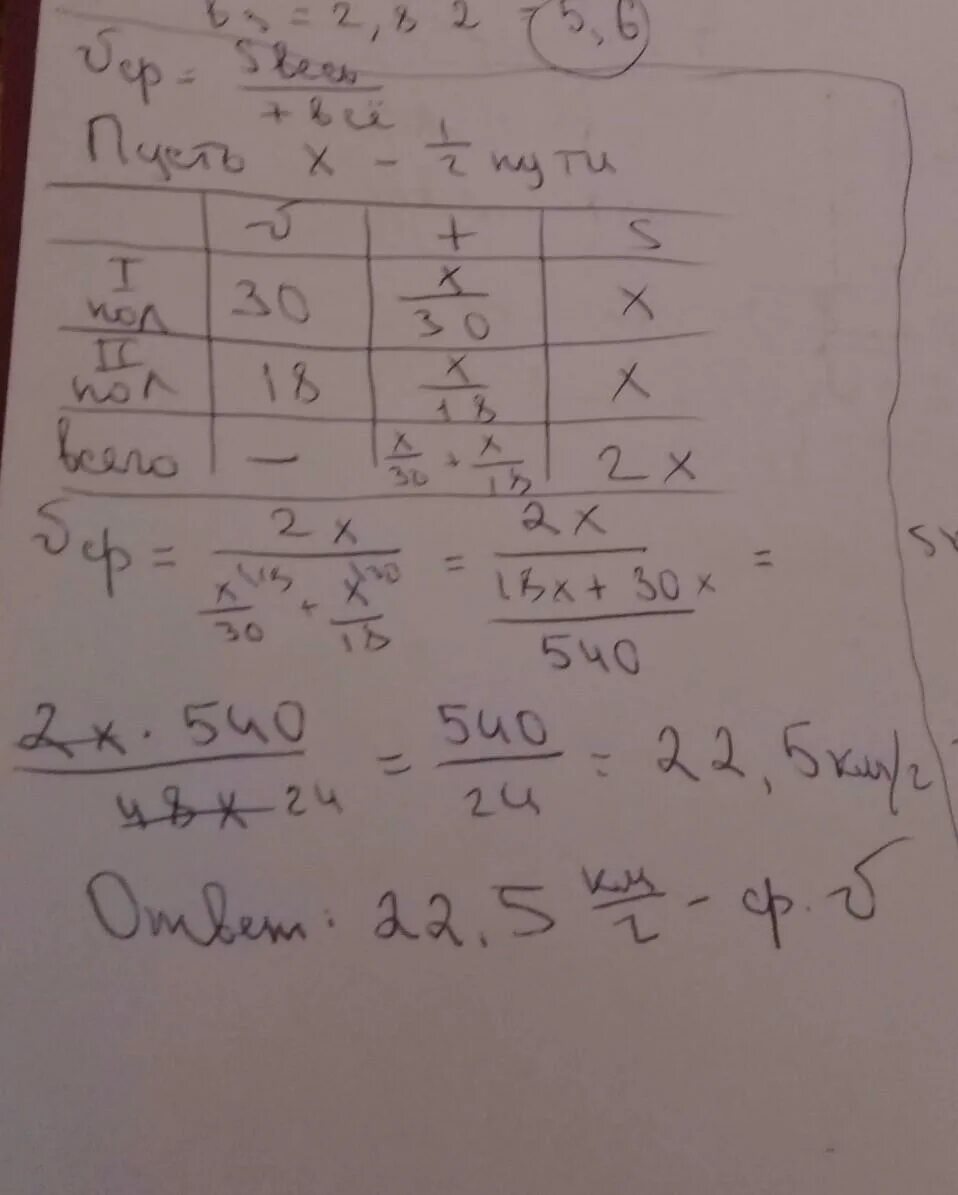 = 2,8 2 = 5,6
vср = Sвесь / t всё
Пусть x - 1/2 пути
v t S
I пол 30 x/30 x
II пол 18 x/18 x
всего — x/30 + x/18 2x
vср = 2x / (x^18/30 + x^30/18) = 2x / ((18x + 30x)/540) =
2x · 540 / 48x 24 = 540/24 = 22,5 км/г
Ответ: 22,5 км/г - ср. v